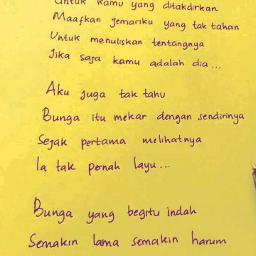 Untuk kamu yang ditakdirkan
Maafkan jemariku yang tak tahan
Untuk menuliskan tentangnya
Jika saja kamu adalah dia...
Aku juga tak tahu
Bunga itu mekar dengan sendirinya
Sejak pertama melihatnya
Ia tak pernah layu...
Bunga yang begitu indah
Semakin lama semakin harum